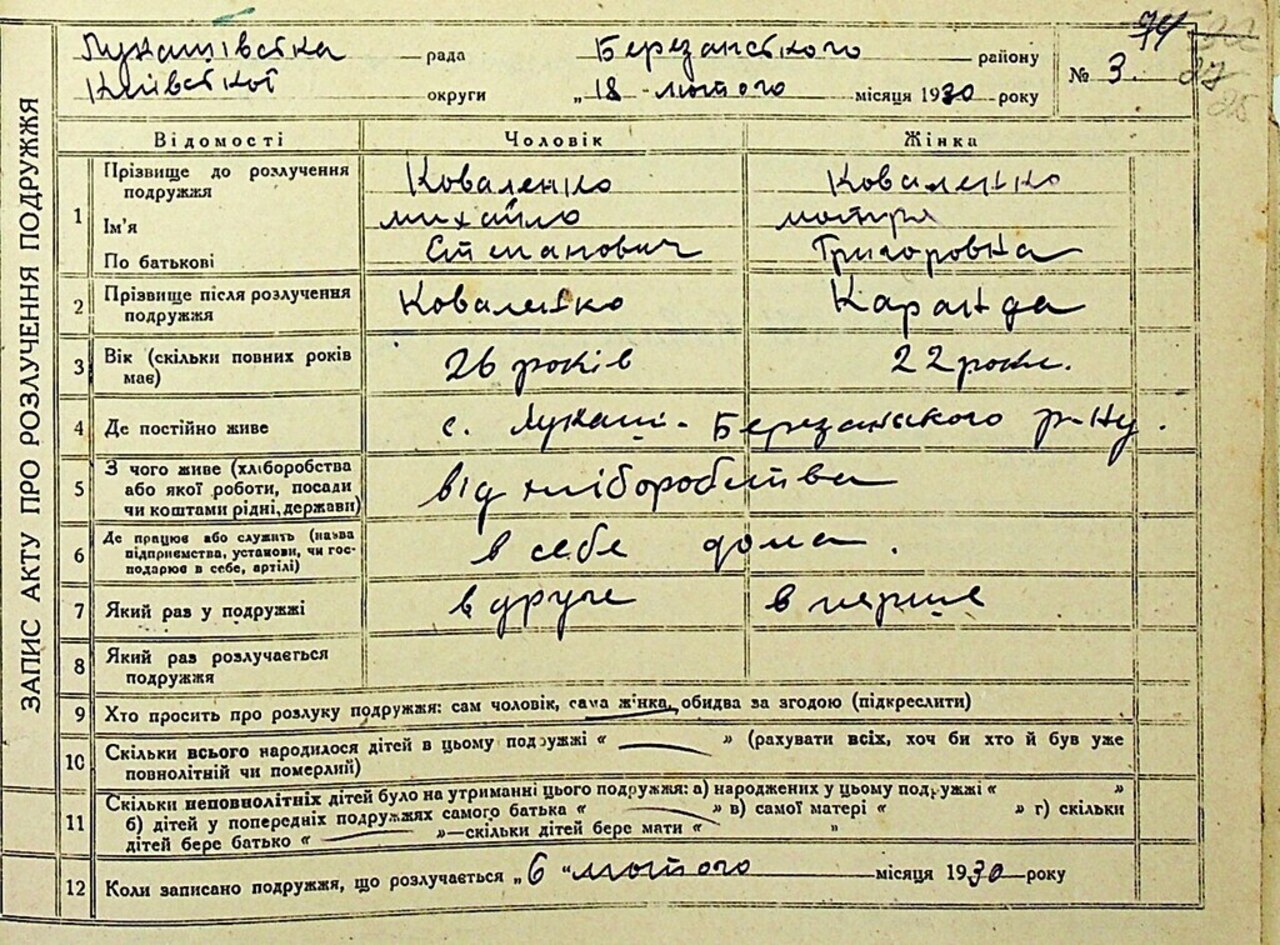 74
Лукашівська рада Березанського району
Київської округи „18 - лютого місяця 1930 року
№ 3.
27
25
ЗАПИС АКТУ ПРО РОЗЛУЧЕННЯ ПОДРУЖЖЯ
Відомості Чоловік Жінка
1 Прізвище до розлучення подружжя Коваленко Коваленко
Ім'я михайло мотря
По батькові Степанович Григоровна
2 Прізвище після розлучення подружжя Коваленко Каранда
3 Вік (скільки повних років має) 26 років 22 роки.
4 Де постійно живе с. Лукаші - Березанського р-ну.
5 З чого живе (хліборобства або якої роботи, посади чи коштами рідні, держави) від хліборобства
6 Де працює або служить (назва підприємства, установи, чи господарює в себе, артілі) в себе дома.
7 Який раз у подружжі в друге в перше
8 Який раз розлучається подружжя
9 Хто просить про розлуку подружжя: сам чоловік, сама жінка, обидва за згодою (підкреслити)
10 Скільки всього народилося дітей в цьому подружжі « — » (рахувати всіх, хоч би хто й був уже
повнолітній чи померлий)
11 Скільки неповнолітніх дітей було на утриманні цього подружжя: а) народжених у цьому подружжі « »
б) дітей у попередніх подружжях самого батька « — » в) самої матері « » г) скільки
дітей бере батько « — »—скільки дітей бере мати « »
12 Коли записано подружжя, що розлучається „6 " лютого місяця 1930 року